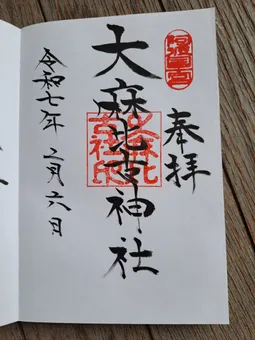 奉拝
大麻比古神社
令和七年二月六日